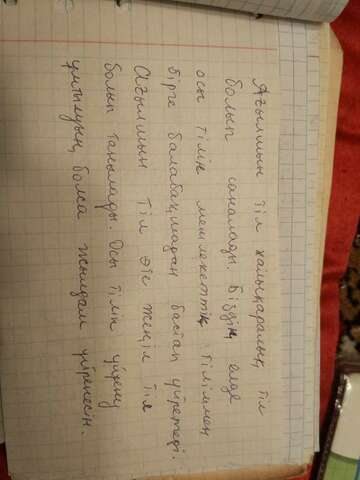 Ағылшын тіл халықаралық тіл
болып саналады. Біздің елде
осы тілін мемлекеттік тілімен
бірге балабақшадан бастап үйретеді.
Ағылшын тіл өте жеңіл тіл
болып танылады. Осы тілін үйрену
ұмтылуың болса жылдам үйренесің.